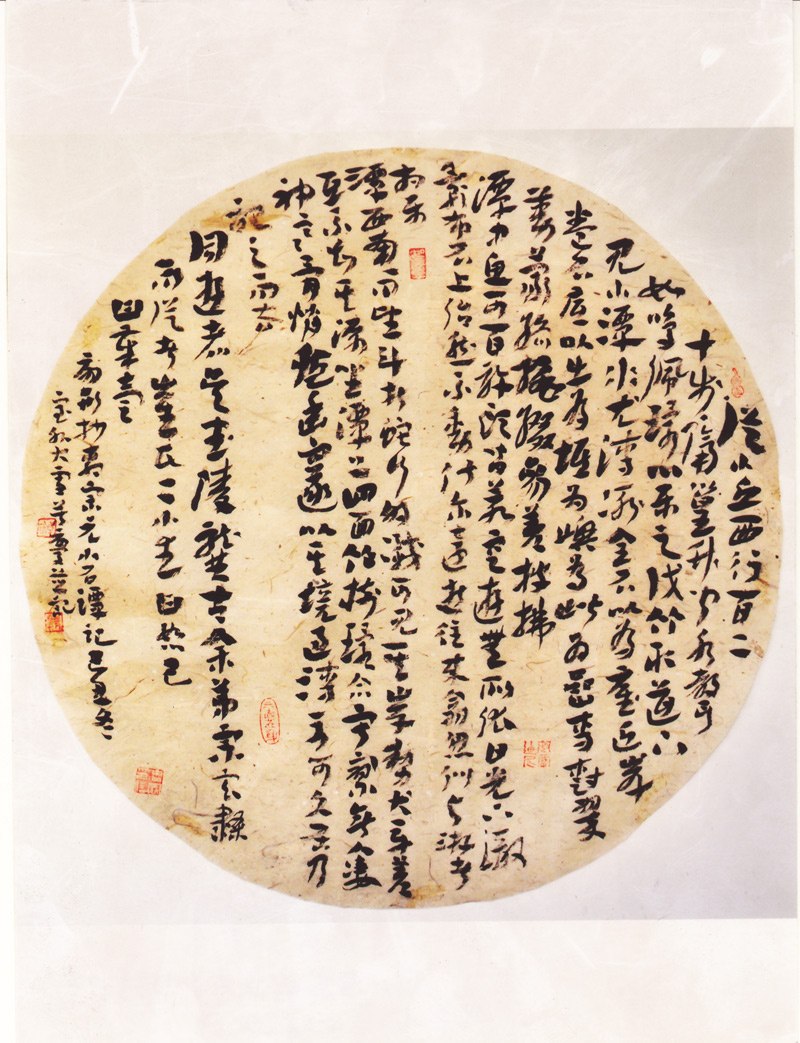 從小丘西行百二
十步隔篁竹聞水聲
如鳴佩環心樂之伐竹取道下
見小潭水尤清冽全石以為底近岸
卷石底以出為坻為嶼為嵁為巖青樹翠
蔓蒙絡搖綴參差披拂
潭中魚可百許頭皆若空遊無所依日光下澈
影布石上佁然不動俶尔遠逝往來翕忽似與游者
相樂
潭西南而望斗折蛇行明滅可見其岸勢犬牙差
互不知其源坐潭上四面竹樹環合寂寥無人淒
神寒骨悄愴幽邃以其境過清不可久居乃
記之而去
同遊者吳武陵龔古余弟宗玄隸
而從者崔氏二小生曰恕己
曰奉壹
抄宗元小石潭記己丑冬
大雪